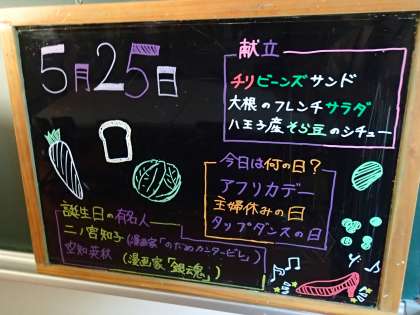 5月25日
献立
チリビーンズサンド
大根のフレンチサラダ
八王子産そら豆のシチュー
今日は何の日?
アフリカデー
主婦休みの日
タップダンスの日
誕生日の有名人
二ノ宮知子(漫画家「のだめカンタービレ」)
空知英秋(漫画家「銀魂」)